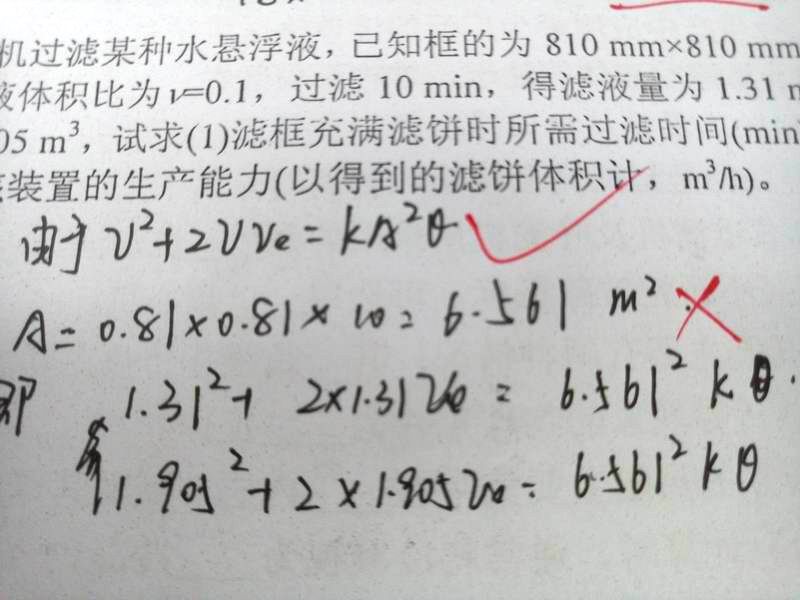 机过滤某种水悬浮液，已知框的为 810 mm×810 mm
液体积比为ν=0.1，过滤 10 min，得滤液量为 1.31 m
05 m³，试求(1)滤框充满滤饼时所需过滤时间(min
装置的生产能力(以得到的滤饼体积计，m³/h)。
由于 V²+2VVe=KA²θ
A=0.81×0.81×10=6.561 m²
即 1.31²+ 2×1.31Ve = 6.561² Kθ.
1.905²+2×1.905Ve= 6.561² Kθ